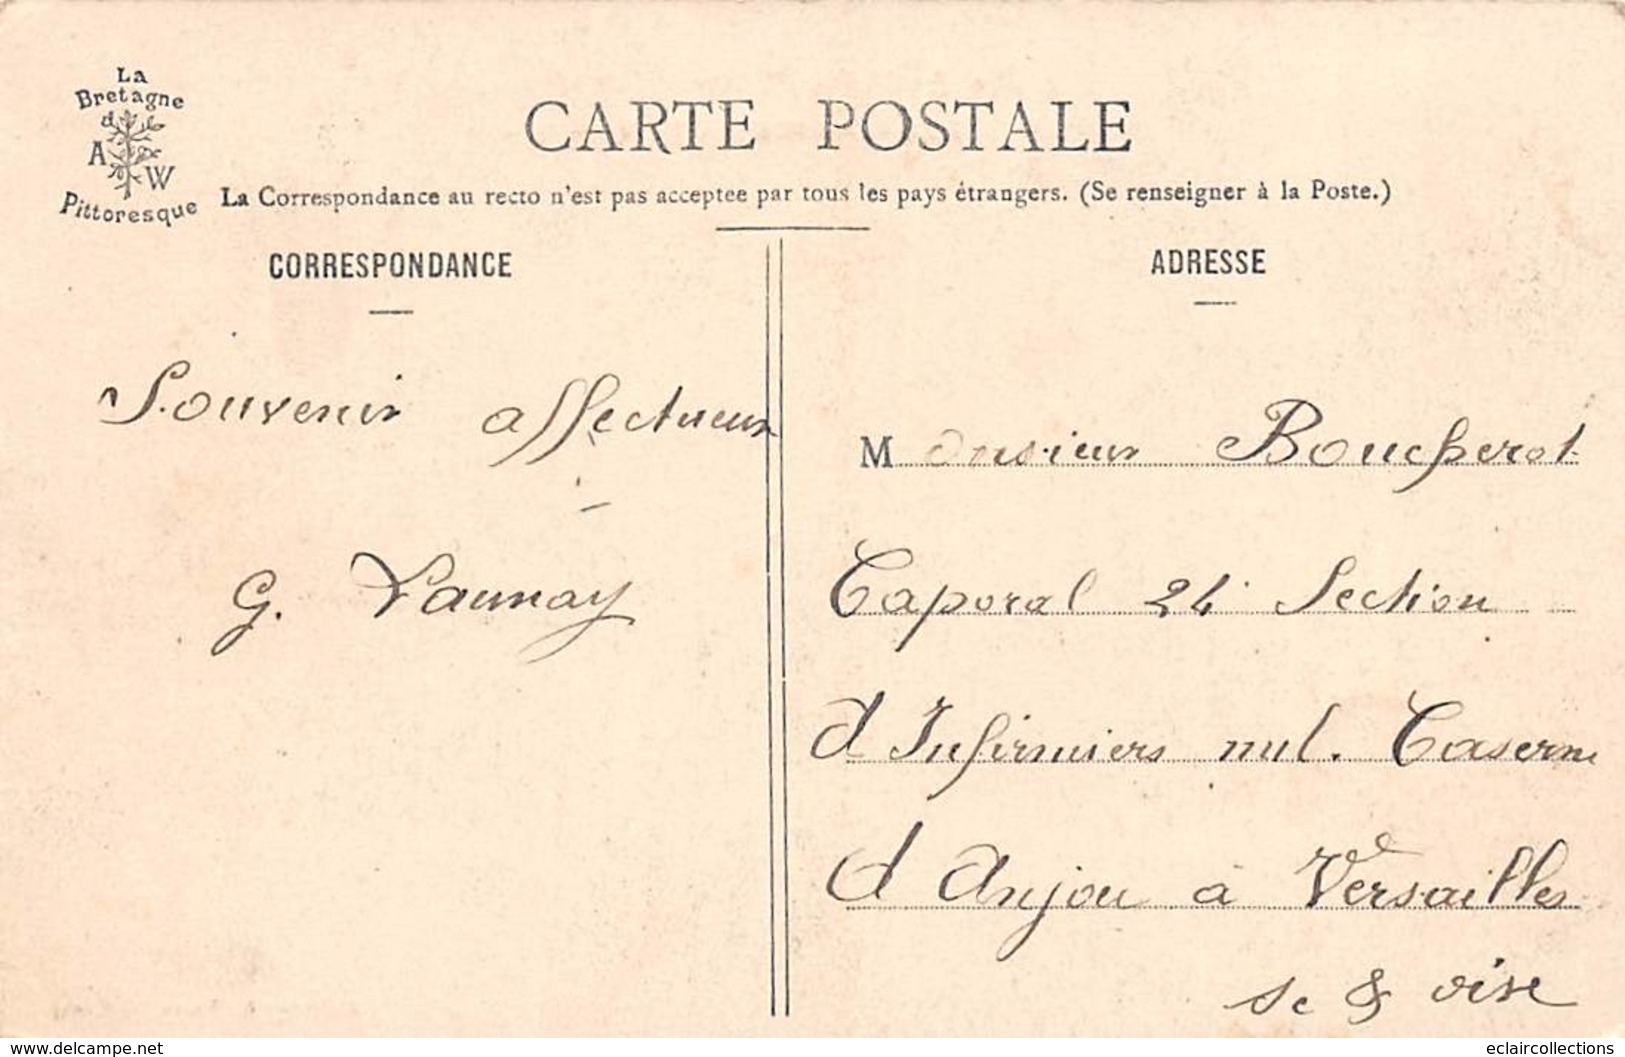 La
Bretagne
A W
Pittoresque
CARTE POSTALE
La Correspondance au recto n'est pas acceptee par tous les pays étrangers. (Se renseigner à la Poste.)
CORRESPONDANCE
ADRESSE
Souvenir affectueux
G. Launay
Monsieur Boucherot
Caporal Section
d'Infirmiers mil. Caserne
d Anjou à Versailles
Se & Oise
www.delcampe.net
eclaircollections